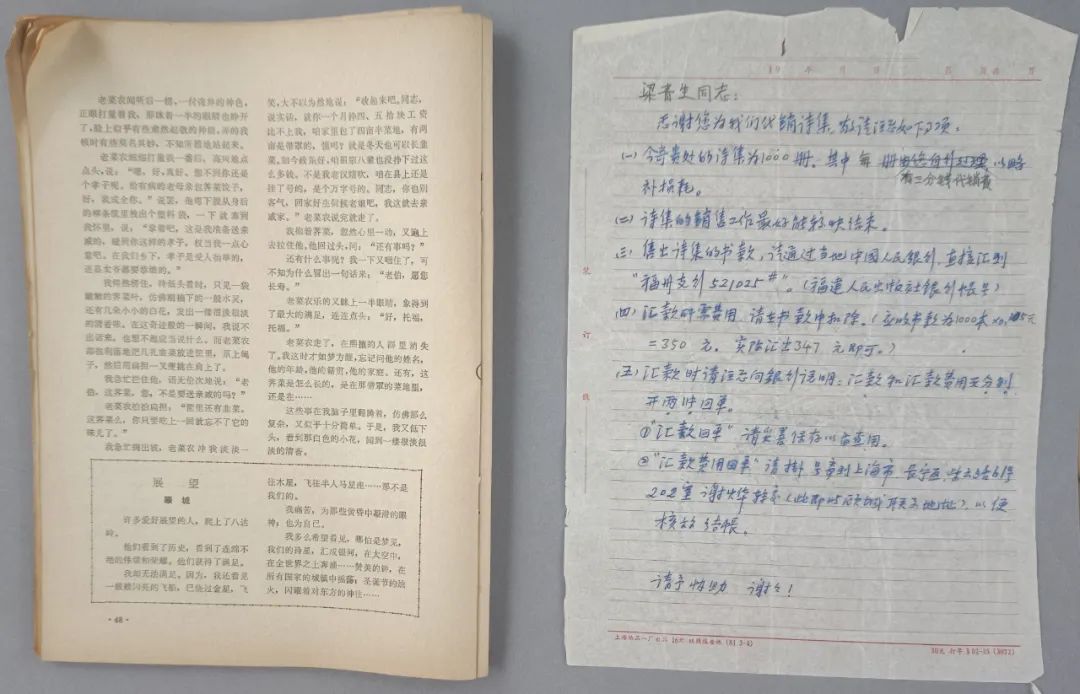 老菜农闻听后一楞，一付诧异的神色，
正眼打量着我，那眯着一半的眼睛也睁开
了，脸上似乎有些肃然起敬的神情，弄的我
顿时有些莫名其妙，不知所措地站起来。
老菜农细细打量我一番后，高兴地点
点头，说：“嗯，好，真好，想不到你还是
个孝子呢。给有病的老母亲包荠菜饺子，
好，我成全你。”说罢，他弯下腰从身后
的哪条筐里拽出个塑料袋，一下就塞到
我怀里，说：“拿着吧，这是我准备送亲
戚的，碰到你这样的孝子，权当我一点心
意吧。在我们乡下，孝子是受人抬举的，
还是衣
我愕然楞住，待低头看时，只见一袋
嫩嫩的荠菜叶，仿佛刚摘下的一般水灵，
还有几朵小小的白花，发出一缕很淡很淡
的清香味。在这奇迹般的一瞬间，我说不
出话来，也想不起应当说什么。而老菜农
那张利落地把几扎韭菜放进筐里，吊上绳
子，然后用扁担一叉便挑在肩上了。
我急忙拦住他，语无伦次地说：“老
伯，这荠菜，您，不是要送亲戚的吗？”
老菜农拍拍扁担：“筐里还有韭菜。
这荠菜么，你只要吃上一回就忘不了它的
味儿了。”
我急忙掏出钱，老菜农冲我淡淡一
笑，大不以为然地说：“收起来吧，同志，
说实话，就你一个月挣四、五拾块工资
比不上我，咱家里包了四亩半菜地，有两
亩是带罩的，懂吗？就是冬天也可以长韭
菜。如今政策好，咱祖宗八辈也没挣下过这
么多钱。不是我老汉瞎吹，咱在县上还是
挂了号的，是个万字号的。同志，你也别
客气，回家好生伺候老娘吧，我这就去亲
戚家。”老菜农说完就走了。
我抱着荠菜，忽然心里一动，又跑上
去拉住他，他回过头，问：“还有事吗？”
还有什么事呢？我一下又咽住了，可
不知为什么冒出一句话来：“老伯，愿您
长寿。”
老菜农乐的又眯上一半眼睛，象得到
了最大的满足，连连点头：“好，托福，
托福。”
老菜农走了，在熙攘的人群里消失
了。我这时才如梦方醒，忘记问他的姓名，
他的年龄，他的籍贯，他的家庭。还有，这
荠菜是怎么长的，是在那带罩的菜地里，
还是在……
这些事在我脑子里翻腾着，仿佛那么
复杂，又似乎十分简单。于是，我又低下
头，看到那白色的小花，闻到一缕很淡很
淡的清香。
展 望
许多爱好展望的人，爬上了八达
岭。
他们看到了历史，看到了连绵不
绝的伟绩和荣耀。他们获得了满足。
我却无法满足。因为，我还看见
一艘艘闪亮的飞船，已绕过金星，飞
往木星，飞往半人马星座……那不是
我们的。
我痛苦，为那些黄昏中凝滞的眼
神；也为自己。
我多么希望看见，哪怕是梦见，
我们的诗星，汇成银河，在太空中，
在全世界之上奔涌……赞美的钟，在
所有国家的城镇中摇荡；圣诞节的焰
火，闪耀着对东方的神往……
·48·
19 年 月 日
梁青生同志：
感谢您为我们代销诗集，敬请注意如下项：
(一) 今寄贵处的诗集为1000册，其中每册 以略
有三分钱代销费
补损耗。
(二) 诗集的销售工作最好能较快结束。
(三) 售出诗集的书款，请通过当地中国人民银行，直接汇到
“福州支行521025#”。(福建人民出版社银行帐号)
(四) 汇款所需费用，请在书款中扣除。(应收书款为1000本×0.35元
=350 元，实际汇出347元即可。)
(五) 汇款时请注意向银行说明：汇款和汇款费用要分别
开两件回单。
①“汇款回单”请妥善保存以备查用。
②“汇款费用回单”请挂号寄到上海市长宁区
202室 以便
核销结帐。
请予协助 谢谢！
装
订
线